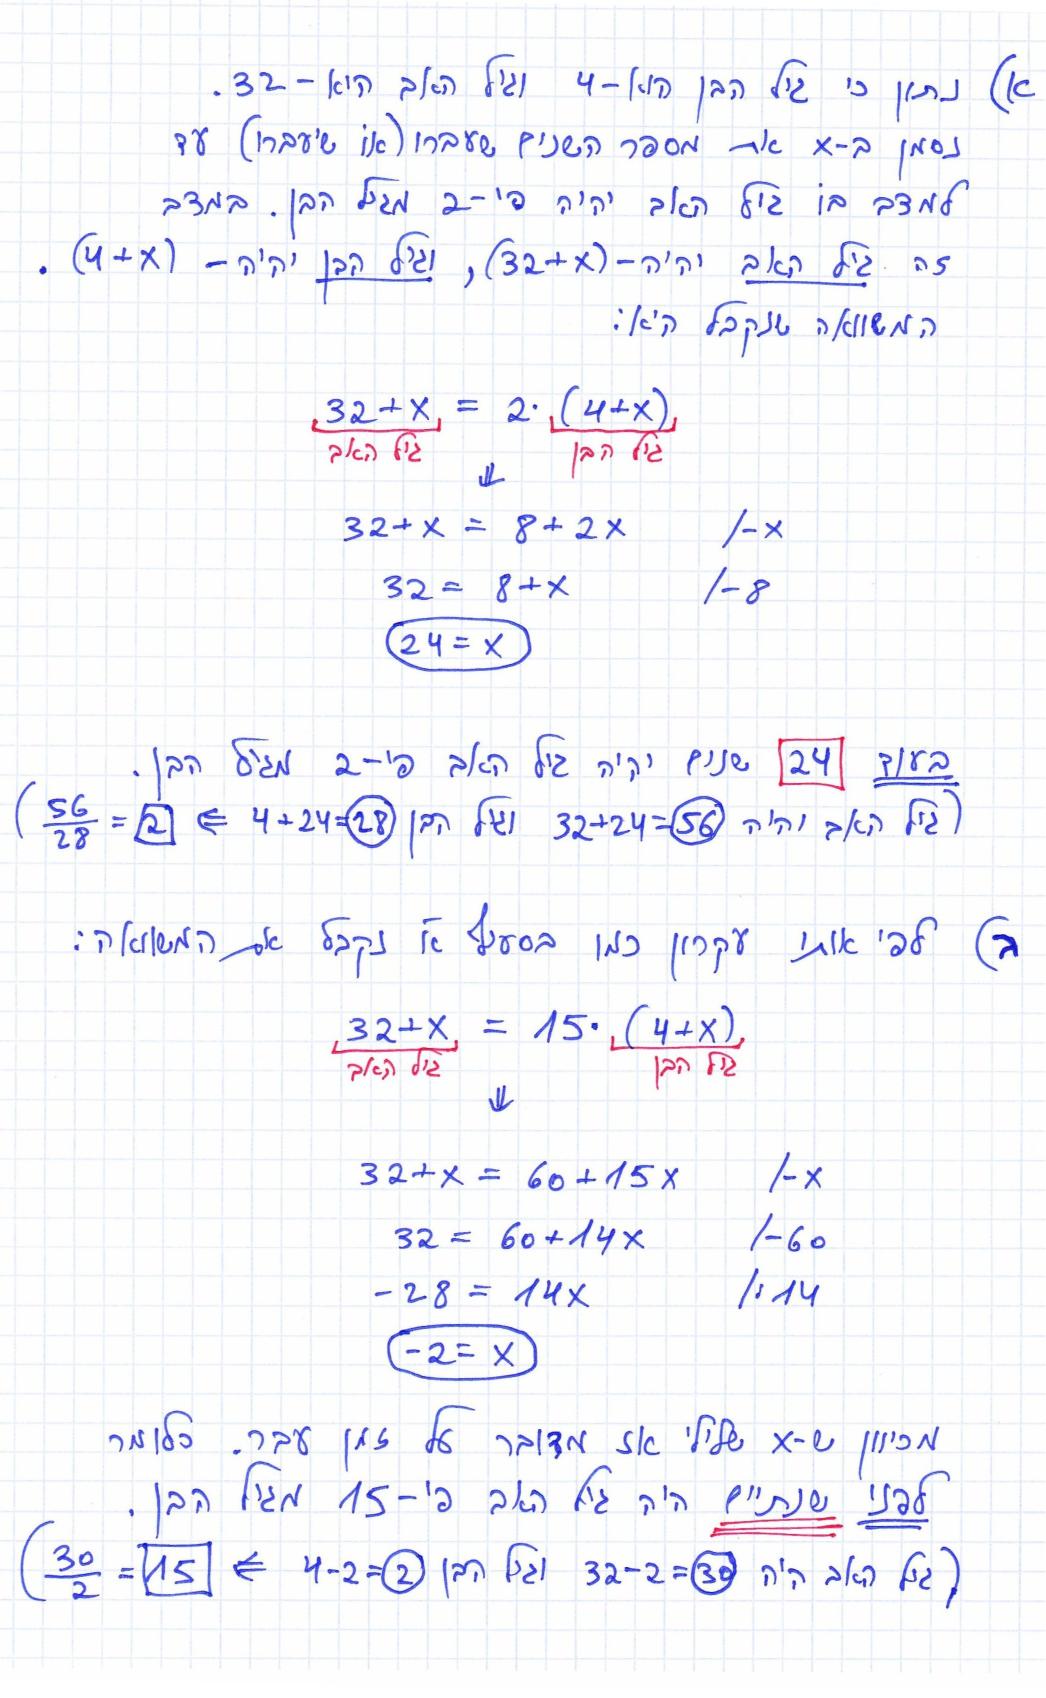 א) נתון כי גיל הבן הוא-4 וגיל האב הוא-32.
נסמן ב-x את מספר השנים שעברו (או שיעברו) עד
למצב בו גיל האב יהיה פי-2 מגיל הבן. במצב
זה גיל האב יהיה-(32+x), וגיל הבן יהיה-(4+x).
המשוואה שנקבל היא:
32+x = 2·(4+x)
גיל האב גיל הבן
⇓
32+x = 8+2x /-x
32 = 8+x /-8
24 = x
בעוד 24 שנים יהיה גיל האב פי-2 מגיל הבן.
(גיל האב יהיה 32+24=56 וגיל הבן 4+24=28 ⇐ 56/28 = 2)
ב) לפי אותו עקרון כמו בסעיף א' נקבל את המשוואה:
32+x = 15·(4+x)
גיל האב גיל הבן
⇓
32+x = 60+15x /-x
32 = 60+14x /-60
-28 = 14x /:14
-2 = x
מכיוון ש-x שלילי אז מדובר על זמן עבר. כלומר
לפני שנתיים היה גיל האב פי-15 מגיל הבן.
(גיל האב היה 32-2=30 וגיל הבן 4-2=2 ⇐ 30/2 = 15)